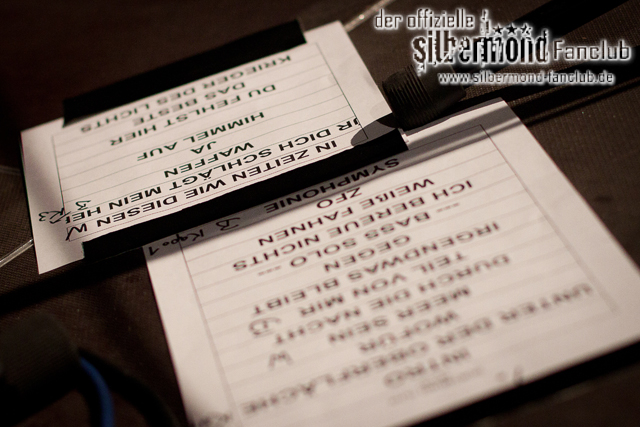 der offizielle
silbermond Fanclub
www.silbermond-fanclub.de
INTRO
UNTER DER OBERFLÄCHE
WOFÜR
MEER SEIN
DURCH DIE NACHT
TEIL VON MIR
IRGENDWAS BLEIBT
GEGEN
--- BASS SOLO ---
ICH BEREUE NICHTS
WEIßE FAHNEN
ZFO
SYMPHONIE
IN ZEITEN WIE DIESEN W
R DICH SCHLÄGT MEIN HER
WAFFEN
JA
HIMMEL AUF
DU FEHLST HIER
DAS BESTE
KRIEGER DES LICHTS